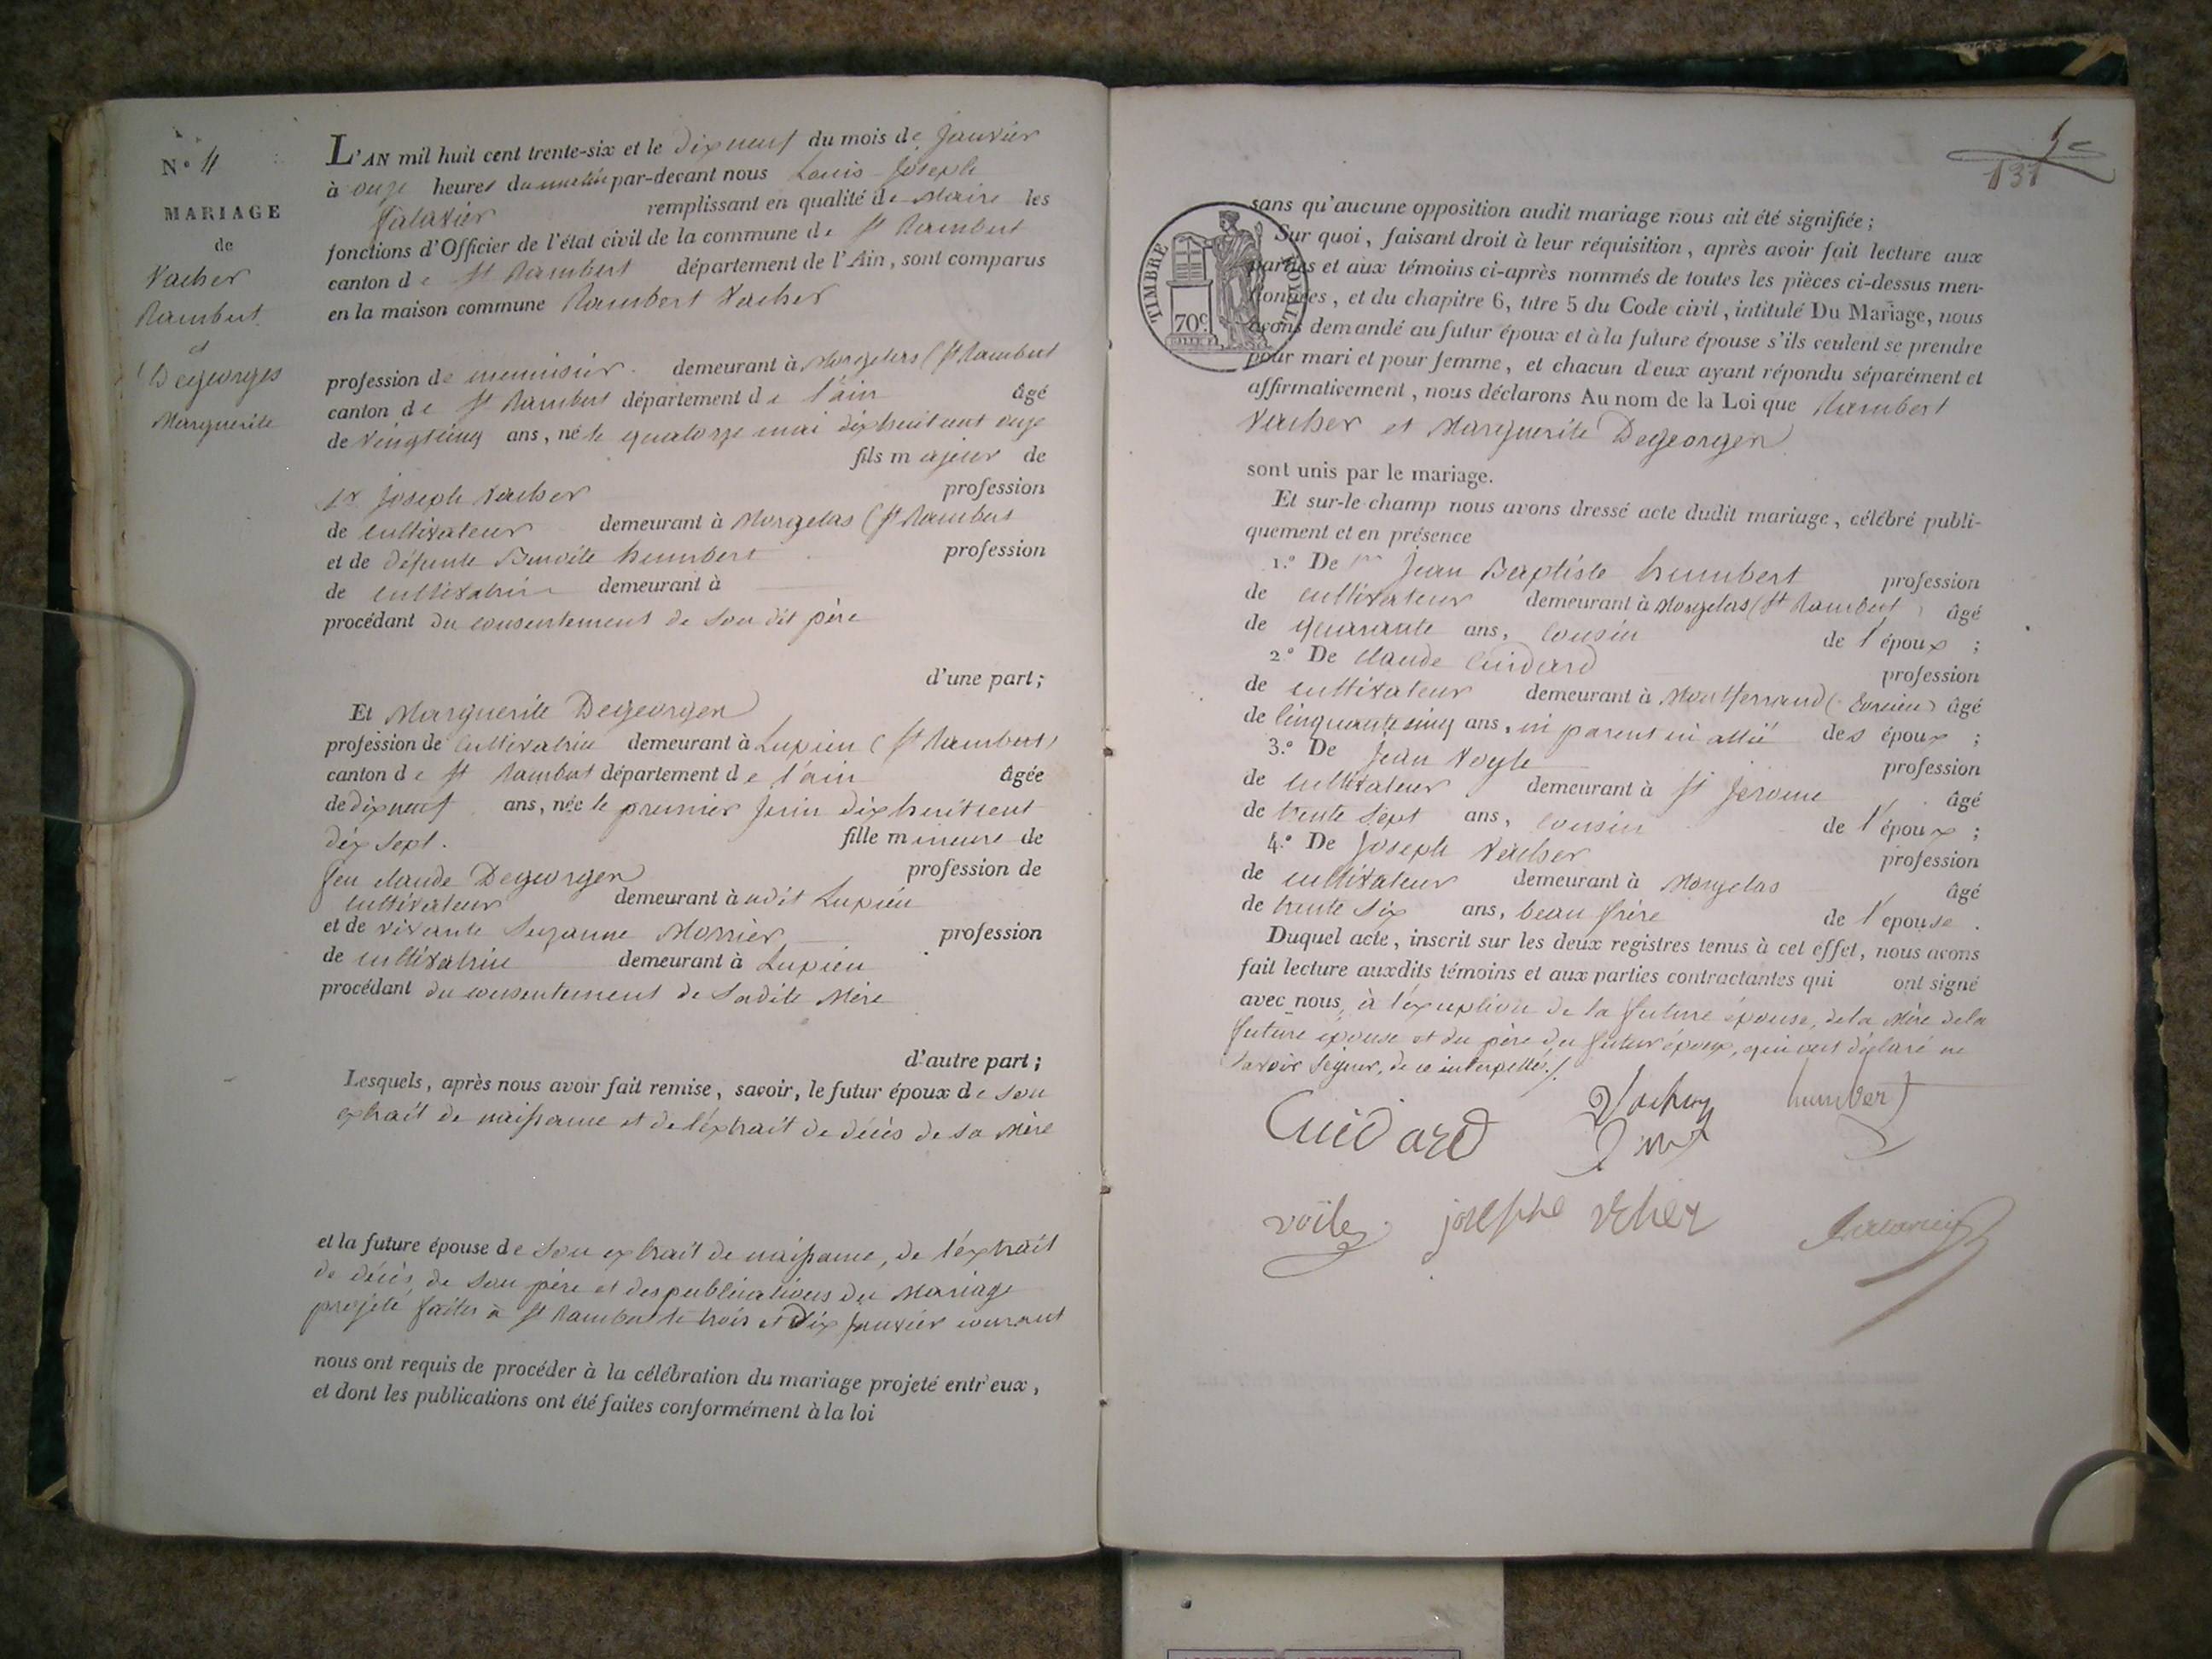 N° 4
MARIAGE
de
Vacher
Rambert
et
Degeorges
Marguerite
L'AN mil huit cent trente-six et le dix neuf du mois de Janvier
à onze heures du matin par-devant nous Louis Joseph
remplissant en qualité de Maire les
fonctions d'Officier de l'état civil de la commune de St Rambert
canton de St Rambert département de l'Ain, sont comparus
en la maison commune Rambert Vacher
profession de menuisier. demeurant à Morgelas (St Rambert
canton de St Rambert département de l'ain âgé
de vingt cinq ans, né le quatorze mai dix huit cent onze
fils majeur de
Joseph Vacher profession
de cultivateur demeurant à Morgelas (St Rambert
et de défunte Benoite humbert profession
de cultivatrice demeurant à
procédant du consentement de son dit père
d'une part;
Et Marguerite Degeorges
profession de cultivatrice demeurant à Lupieu (St Rambert)
canton de St Rambert département de l'ain âgée
de dix neuf ans, née le premier Juin dix huit cent
dix sept. fille mineure de
feu claude Degeorges profession de
cultivateur demeurant à udit Lupieu
et de vivante Suzanne Monier profession
de cultivatrice demeurant à Lupieu
procédant du consentement de sadite Mère
d'autre part;
Lesquels, après nous avoir fait remise, savoir, le futur époux de son
extrait de naissance et de l'extrait de décès de sa Mère
et la future épouse de son extrait de naissance, de l'extrait
de décès de son père et des publications du Mariage
projeté faites à St Rambert le trois et dix Janvier courant
nous ont requis de procéder à la célébration du mariage projeté entr'eux,
et dont les publications ont été faites conformément à la loi
131
TIMBRE ROYAL
70c
sans qu'aucune opposition audit mariage nous ait été signifiée;
Sur quoi, faisant droit à leur réquisition, après avoir fait lecture aux
parties et aux témoins ci-après nommés de toutes les pièces ci-dessus men-
tionnées, et du chapitre 6, titre 5 du Code civil, intitulé Du Mariage, nous
avons demandé au futur époux et à la future épouse s'ils veulent se prendre
pour mari et pour femme, et chacun d'eux ayant répondu séparément et
affirmativement, nous déclarons Au nom de la Loi que Rambert
Vacher et Marguerite Degeorges
sont unis par le mariage.
Et sur-le-champ nous avons dressé acte dudit mariage, célébré publi-
quement et en présence
1.° De Jean Baptiste humbert profession
de cultivateur demeurant à Morgelas (St Rambert) âgé
de quarante ans, cousin de l'époux;
2.° De claude Cuidard profession
de cultivateur demeurant à Montferrand ( âgé
de cinquante cinq ans, ni parent ni allié des époux;
3.° De Jean Voyle profession
de cultivateur demeurant à St Jerome âgé
de trente sept ans, cousin de l'époux;
4.° De Joseph Vacher profession
de cultivateur demeurant à Morgelas âgé
de trente six ans, beau frère de l'epouse.
Duquel acte, inscrit sur les deux registres tenus à cet effet, nous avons
fait lecture auxdits témoins et aux parties contractantes qui ont signé
avec nous, à l'exception de la future épouse, de la Mère de la
future épouse et du père du futur époux, qui ont déclaré ne
savoir signer, de ce interpellés./.
Cuidard humbert
voile joseph